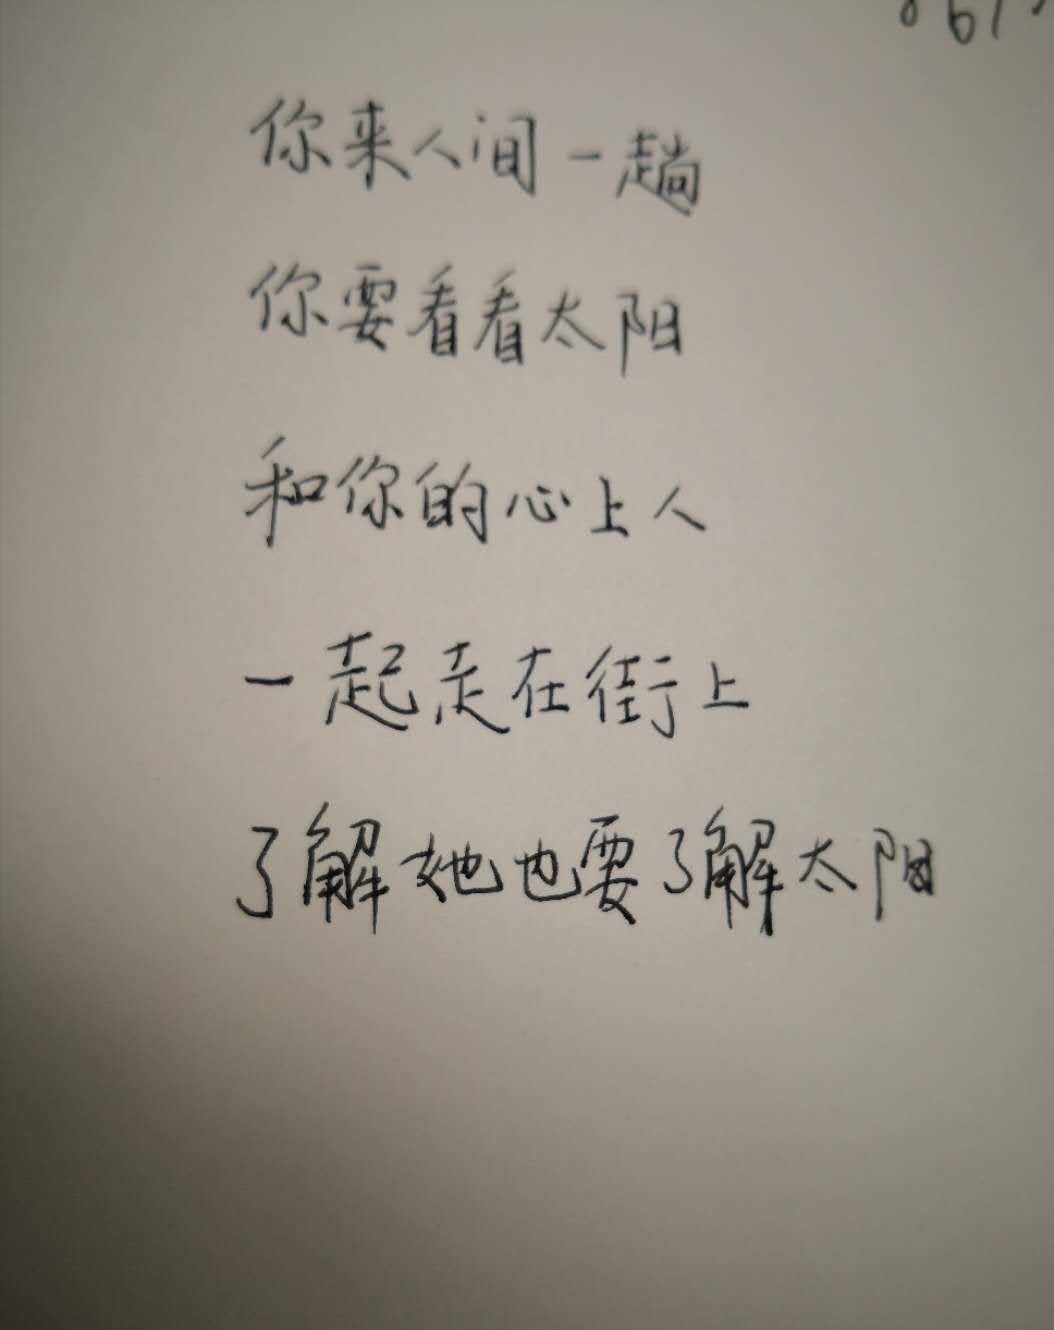 你来人间一趟
你要看看太阳
和你的心上人
一起走在街上
了解她也要了解太阳